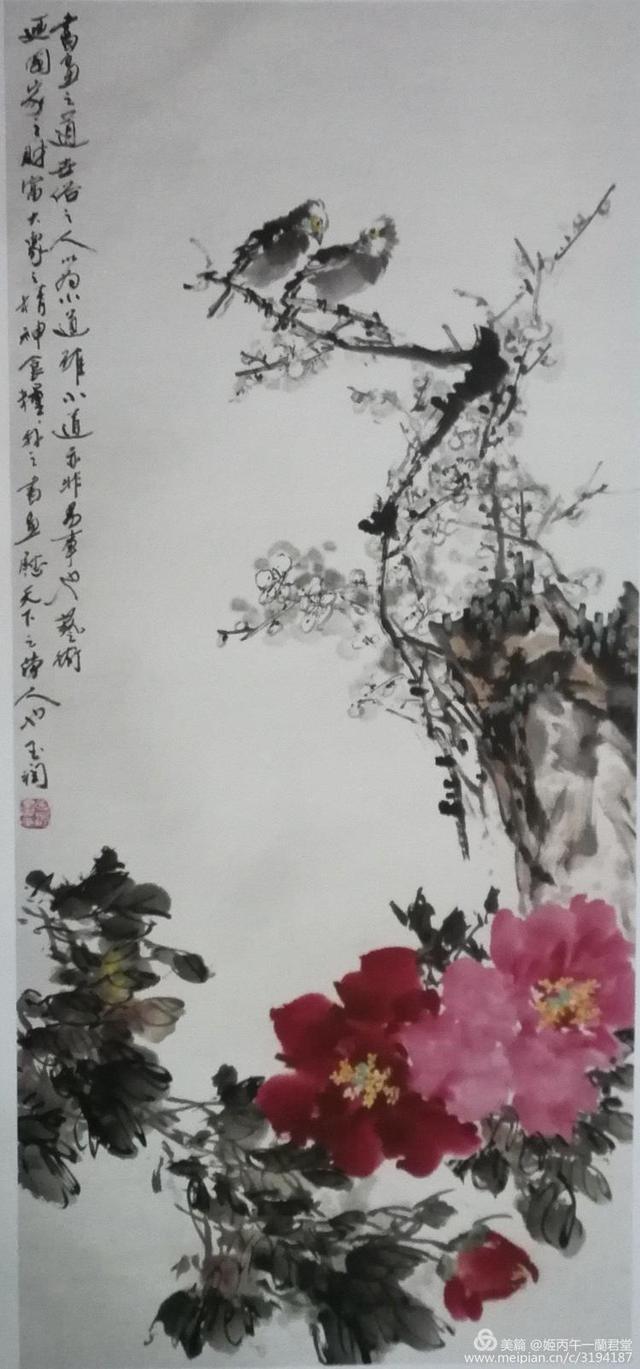 書画之道世俗之人以為小道雖小道亦非易事也藝術
國家之財富大衆之精神食糧天下之人也玉潤
美篇 @姬丙午一蘭君堂
www.meipian.cn/c/3194187